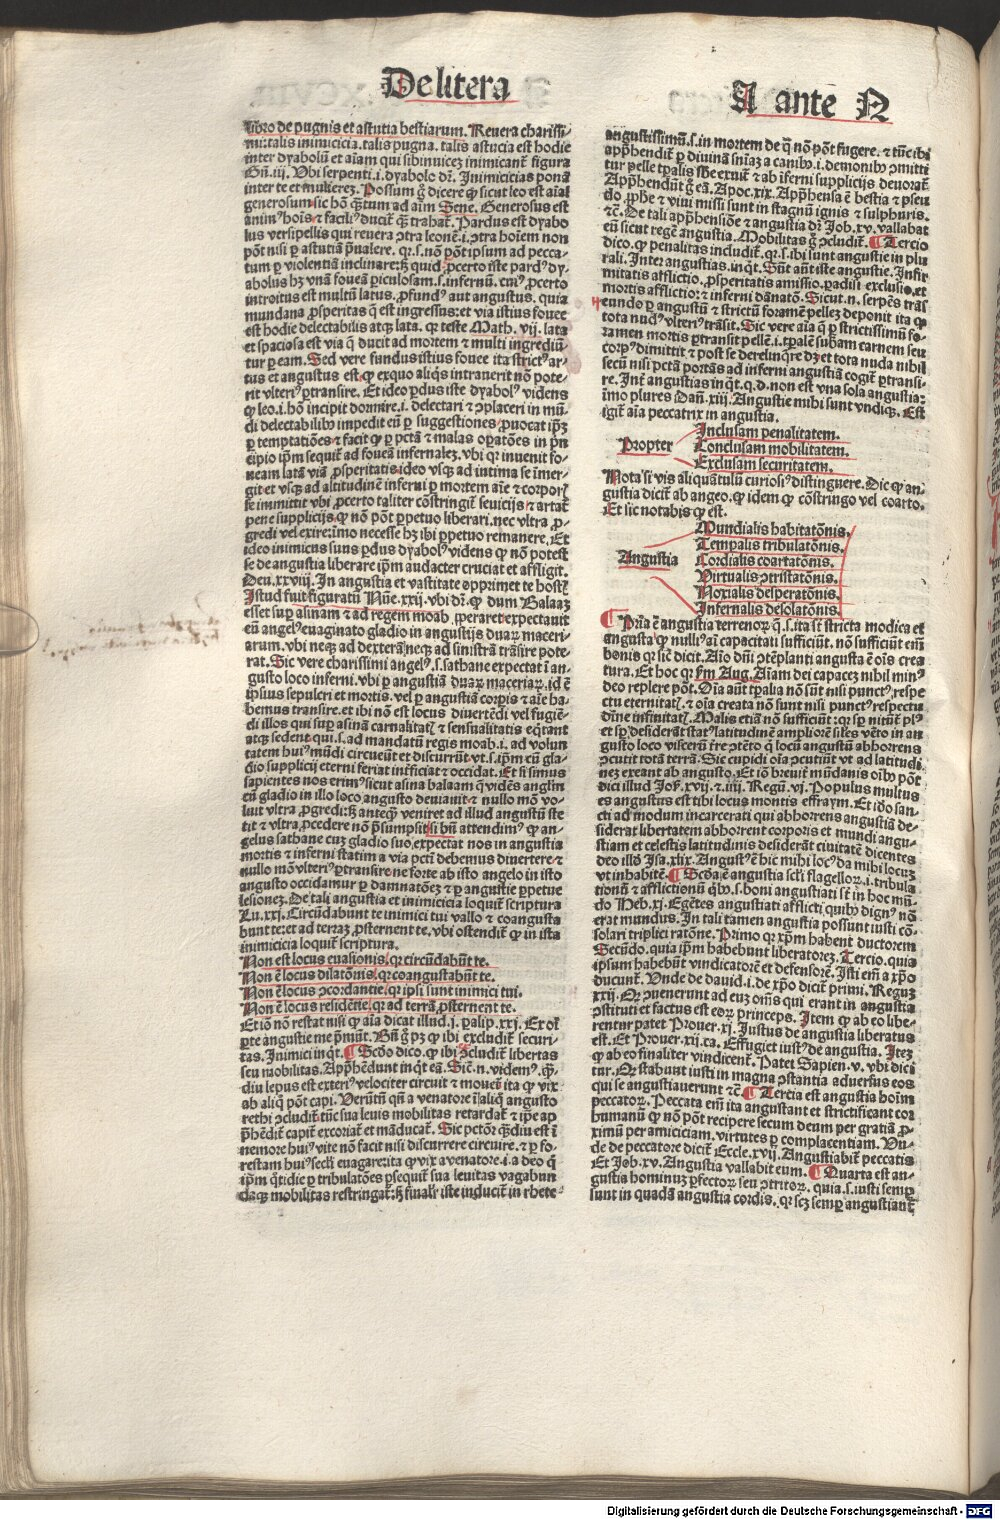 De litera
A ante N
libro de pugnis et astutia bestiarum. Reuera charissi-
mi: talis inimicicia. talis pugna. talis astucia est hodie
inter dyabolũ et aīam qui sibinuicez inimicant̃ figura
Gñ. iij. Vbi serpenti .i. dyabolo dr̃. Inimicicias ponã
inter te et mulierez. Possum g̃ dicere ꝙ sicut leo est aīal
generosum sic hõ q̃tum ad aīm Gene. Generosus est
anim⁹ hoīs ⁊ facili⁹ ducit̃ q̃ trahat̃. Pardus est dyabo
lus versipellis qui reuera ↄtra leonẽ .i. ↄtra hoīem non
põt nisi ꝑ astutiã p̃ualere. qr .s. nõ põt ipsum ad pecca-
tum ꝑ violentiã inclinare: hz̃ quid ꝓcerto iste pard⁹ dy-
abolus hz̃ vnã foueã ꝑiculosam .s. infernũ. cui⁹ ꝓcerto
introitus est multũ latus. ꝓfund⁹ aut angustus. quia
mundana ꝓsperitas q̃ est ingressus: et via istius fouee
est hodie delectabilis atq̃ lata. qr teste Math. vij. lata
et spaciosa est via q̃ ducit ad mortem ⁊ multi ingrediũ
tur ꝑ eam. Sed vere fundus istius fouee ita strict⁹ ar-
tus et angustus est. ꝙ exquo aliq̃s intrauerit nõ pote-
rit vlteri⁹ ꝑtransire. Et ideo ꝑdus iste dyabol⁹ videns
ꝙ leo .i. hõ incipit dormire .i. delectari ⁊ ↄplaceri in mũ
di delectabilib⁹ impedit eũ ꝑ suggestiones ꝓuocat ip̃z
ꝑ temptatiões ⁊ facit ꝙ ꝑ pctã ⁊ malas oꝑatões in pñ
cipio ip̃m sequit̃ ad foueã infernalez. vbi qr inuenit fo-
ueam latã viã ꝓsperitatis ideo vsq̃ ad intima se immer-
git et vsq̃ ad altitudinẽ inferni ꝑ mortem aīe ⁊ corporꝭ
se immittit vbi ꝓcerto taliter cõstringit̃ seuicijs ⁊ artat̃
pene supplicijs ꝙ nõ põt ꝑpetuo liberari. nec vltra ꝓ-
gredi vel exire: īmo necesse hz̃ ibi ꝑpetuo remanere. Et
ideo inimicus suus ꝑdus dyabol⁹ videns ꝙ nõ potest
se de angustia liberare ip̃m audacter cruciat et affligit.
Deu. xxviij. In angustia et vastitate opprimet te hostꝭ
Istud fuit figuratũ Nũe. xxij. vbi dr̃. ꝙ dum Balaaz
esset suꝑ asinam ⁊ ad regem moab ꝓperaret expectauit
eũ angel⁹ euaginato gladio in angustijs duaꝝ maceri-
arum. vbi neqꝫ ad dexterã neqꝫ ad sinistrã trãsire pote-
rat. Sic vere charissimi angel⁹ .s. sathane expectat ī an-
gusto loco inferni. vbi ꝑ angustiã duaꝝ maceriaꝝ. id ẽ
ipsius sepulcri et mortis. vel ꝑ angustiã corpis ⁊ aīe ha-
bemus transire. et ibi nõ est locus diuertẽdi vel fugiẽ-
di illos qui suꝑ asinã carnalitatꝭ ⁊ sensualitatis eq̃tant
atqꝫ sedent. qui .s. ad mandatũ regis moab .i. ad volun
tatem hui⁹ mũdi circueũt et discurrũt. vt .s. ip̃m eũ gla-
dio supplicij eterni feriat int̃ficiat ⁊ occidat. Et si simus
sapientes nos erim⁹ sicut asina balaam q̃ vidẽs anglm̃
cũ gladio in illo loco angusto deuiauit ⁊ nullo mõ vo-
luit vltra ꝓgredi: hz̃ anteqꝫ veniret ad illud angustũ ste
tit ⁊ vltra ꝓcedere nõ p̃sumpsit si bñ attendim⁹ ꝙ an-
gelus sathane cuz gladio suo expectat nos in angustia
mortis ⁊ inferni statim a via pcti debemus diuertere ⁊
nullo mõ vlteri⁹ ꝑtransire. ne forte ab isto angelo in isto
angusto occidamur ꝑ damnatõez ⁊ ꝑ angustie ꝑpetue
lesionez. De tali angustia et inimicicia loquit̃ scriptura
Lu. xxj. Circũdabunt te inimici tui vallo ⁊ coangusta
bunt te: et ad terraz ꝓsternent te. vbi ostendit̃ ꝙ in ista
inimicicia loquit̃ scriptura.
Non est locus euasionis. qr circũdabũt te.
Non ẽ locus dilatõnis. qr coangustabũt te.
Non ẽ locus ↄcordantie. qr ipsi sunt inimici tui.
Non ẽ locus residẽtie. qr ad terrã ꝓsternent te.
Et iõ nõ restat nisi ꝙ aīa dicat illud .j. palip. xxj. Ex oĩ
ꝑte angustie me p̃mũt. Bñ g̃ pz ꝙ ibi excludit̃ securi-
tas. Inimici inq̃t. ¶ Scďo dico. ꝙ ibi ↄcludit̃ libertas
seu mobilitas. Appħẽdunt inq̃t eã. Sic̃ .n. videm⁹. q̃
diu lepus est exteri⁹ velociter circuit ⁊ mouet̃ ita ꝙ vix
ab aliq̃ põt capi. Verũtñ qñ a venatore ī aliq̃ angusto
rethi ↄcludit̃ tũc sua leuis mobilitas retardat̃ ⁊ ip̃e ap
p̃hẽdit̃ capit̃ excoriat̃ et mãducat̃. Sic pctõr q̃diu est ī
nemore hui⁹ vite nõ facit nisi discurrere circuire. ⁊ ꝑ fo-
restam hui⁹ secľi euagare: ita ꝙ vix a venatore .i. a deo q̃
ip̃m q̃tidie ꝑ tribulatões ꝑsequit̃ sua leuitas vagabun
daqꝫ mobilitas restringat̃: hz̃ finalr̃ iste inducit̃ in rhete-
angustissimũ .s. in mortem de q̃ nõ põt fugere. ⁊ tũc ibi
app̃hendit̃ ꝑ diuinã sniaz a canib⁹ .i. demonib⁹ ↄmitti
tur pelle tp̃alis sbẽ exuit̃ ⁊ ab iferni supplicijs deuorat̃
Apphendũt g̃ eã. Apoc. xix. Apphẽsa ẽ bestia ⁊ pseu
do ꝓphe ⁊ viui missi sunt in stagnũ ignis ⁊ sulphuris.
⁊c̃. De tali apphẽsiõe ⁊ angustia dr̃ Job. xv. vallabat
eũ sicut regẽ angustia. Mobilitas g̃ ↄcludit̃. ¶ Tercio
dico. ꝙ penalitas includit̃. qr .s. ibi sunt angustie in plu
rali. Inter angustias. inq̃t. Sũt aut̃ iste angustie. Infir
mitatis afflictio. ꝓsperitatis amissio. ꝑadisi exclusio. et
mortis afflictio: ⁊ inferni dãnatõ. Sicut .n. serpẽs trãs
eundo ꝑ angustũ ⁊ strictũ foramẽ pellez deponit ita ꝙ
tota nud⁹ vlteri⁹ trãsit. Sic vere aīa q̃ ꝑ strictissimũ fo-
ramen mortis ꝑtransit pellẽ .i. tp̃alẽ subam carnem seu
corp⁹ dimittit ⁊ post se derelinq̃re dz et tota nuda nihil
secũ nisi pctã portãs ad inferni angustiã cogit̃ ꝑtransi-
re. Int̃ angustias inq̃t. q.d. non est vna sola angustia:
īmo plures Dañ. xiij. Angustie mihi sunt vndiqꝫ. Est
igit̃ aīa peccatrix in angustia.
Propter
Inclusam penalitatem.
Conclusam mobilitatem.
Exclusam securitatem.
Nota si vis aliquãtulũ curiosi⁹ distinguere. Dic ꝙ an-
gustia dicit̃ ab angeo. ꝙ idem ꝙ cõstringo vel coarto.
Et sic notabis ꝙ est.
Angustia
Mundialis habitatõnis.
Tempalis tribulatõnis.
Cordialis coartatõnis.
Virtualis ↄtristatõnis.
Noxialis desperatõnis.
Infernalis desolatõnis.
¶ Pria ẽ angustia terrenoꝝ q̃ .s. ita st̃ stricta modica et
angusta ꝙ nulli⁹ aī capacitati sufficiũt. nõ sufficiũt eni
bonis qr sic̃ dicit. Aīo dñi ↄtẽplanti angusta ẽ oīs crea
tura. Et hoc qr ẜm Aug. Aīam dei capacez nihil min⁹
deo replere põt. Oīa aut̃ tp̃alia nõ sũt nisi punct⁹. respe
ctu eternitatꝭ. ⁊ oīa creata nõ sunt nisi punct⁹ respectu
diīne infinitatꝭ. Malis etiã nõ sufficiunt: qr sp nitũt̃ pl⁹
et sp desiderãt stat⁹ latitudinẽ ampliorẽ siles vẽto in an
gusto loco viscerũ t̃re ↄtẽto q̃ locũ angustũ abhorrens
ↄcutit totã terrã. Sic cupidi oīa ↄcutiũt vt ad latitudi
nez exeant ab angusto. Et iõ breuit̃ mũdanis oīb⁹ põt
dici illud Jos. xvij. ⁊ iiij. Regũ. vj. Populus multus
es angustus est tibi locus montis effraym. Et ido san-
cti ad modum incarcerati qui abhorrens angustiã de-
siderat libertatem abhorrent corporis et mundi angu-
stiam et celestis latitudinis desiderãt ciuitatẽ dicentes
deo illd̃ Isa. xlix. Angust⁹ ẽ hic mihi loc⁹ da mihi locuz
vt inhabitẽ. ¶ Scďa ẽ angustia scľi flagelloꝝ .i. tribula
tionũ ⁊ afflictionũ q̃b⁹ .s. boni angustiati st̃ in hoc mũ-
do Heb. xj. Egẽtes angustiati afflicti quib⁹ dign⁹ nõ
erat mundus. In tali tamen angustia possunt iusti cõ-
solari triplici ratõne. Primo qr xp̃m habent ductorem
Secũdo. quia ip̃m habebunt liberatorẽ. Tercio. quia
ipsum habebũt vindicatorẽ et defensorẽ. Isti em̃ a xp̃o
ducunt̃. Vnde de dauid .i. de xp̃o dicit̃ primi. Reguz
xxij. Qr ↄuenerunt ad euz oms̃ qui erant in angustia
ↄstituti et factus est eoꝝ princeps. Item ꝙ ab eo libe-
rentur patet Prouer. xj. Justus de angustia liberatus
est. Et Prouer. xij. ca. Effugiet iust⁹ de angustia. Itez
ꝙ ab eo finaliter vindicent̃. Patet Sapien. v. vbi dici
tur. Qr stabunt iusti in magna ↄstantia aduersus eos
qui se angustiauerunt ⁊c̃. ¶ Tercia est angustia hoīm
peccatoꝝ. Peccata em̃ ita angustant et strictificant cor
humanũ ꝙ nõ põt recipere secum deum per gratiã ꝓ-
ximũ per amiciciam. virtutes ꝑ complacentiam. Vn-
de de peccatore dicit̃ Eccle. xvij. Angustiabit̃ peccatis
Et Job. xv. Angustia vallabit eum. ¶ Quarta est an-
gustia hominuz ꝑfectoꝝ seu ↄtritoꝝ. quia .s. iusti semꝑ
sunt in quadã angustia cordis. qr scz semꝑ angustiant̃
Digitalisierung gefördert durch die Deutsche Forschungsgemeinschaft - DFG